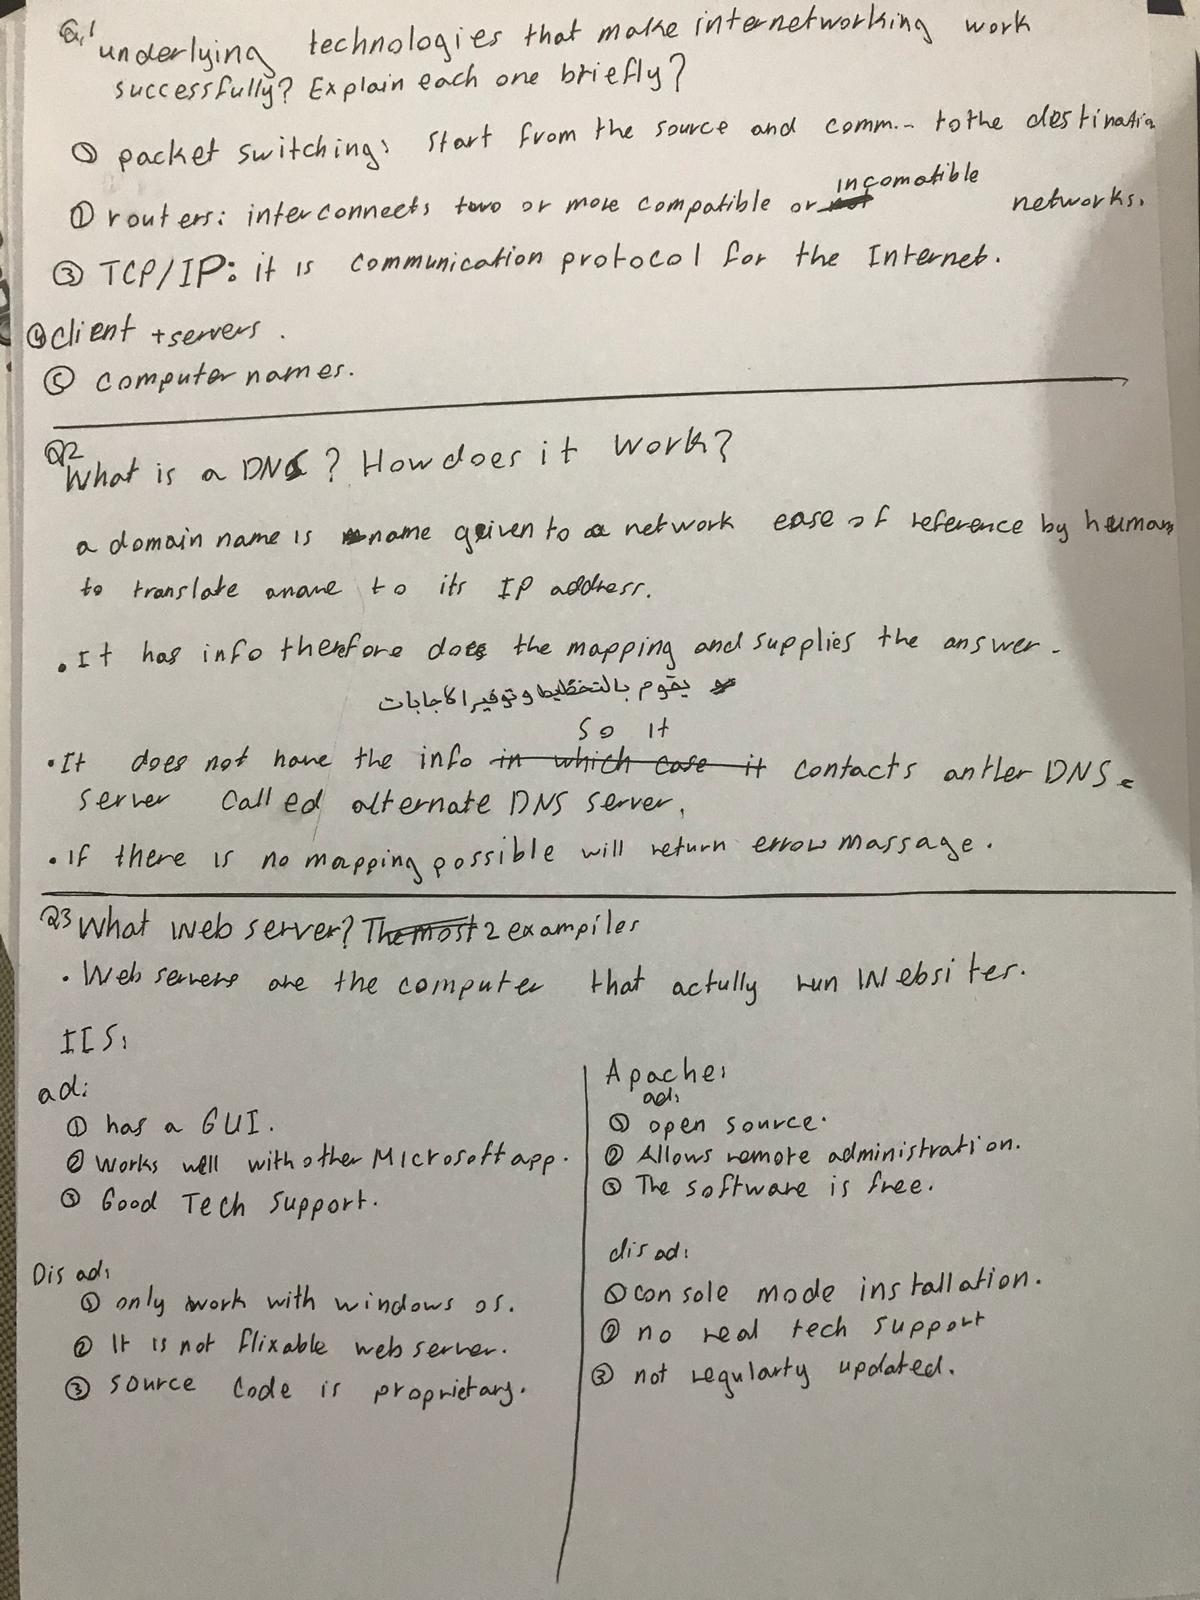 Q.1 underlying technologies that make internetworking work
successfully? Explain each one briefly?
① packet switching: start from the source and comm.. to the destinatio
① routers: interconnects two or more compatible or incomatible networks.
③ TCP/IP: it is communication protocol for the Internet.
④ client + servers .
⑤ computer names.
Q2
What is a DNS ? How does it work?
a domain name is name given to a network ease of reference by humans
to translate aname to its IP address.
• It has info therefore does the mapping and supplies the answer.
يقوم بالتخطيط وتوفير الاجابات
so it
• It does not have the info in which case it contacts antler DNS
server called alternate DNS server.
• If there is no mapping possible will return error massage.
Q3 What web server? The most 2 exampiles
• Web servers are the computer that actully run Websites.
IIS:
ad:
① has a GUI.
② works well with other Microsoft app.
③ Good Tech support.
Dis ad:
① only work with windows os.
② It is not flixable web server.
③ source code is proprietary.
Apache:
ad:
① open source.
② Allows remote administration.
③ The software is free.
dis ad:
① console mode installation.
② no real tech support
③ not regularty updated.